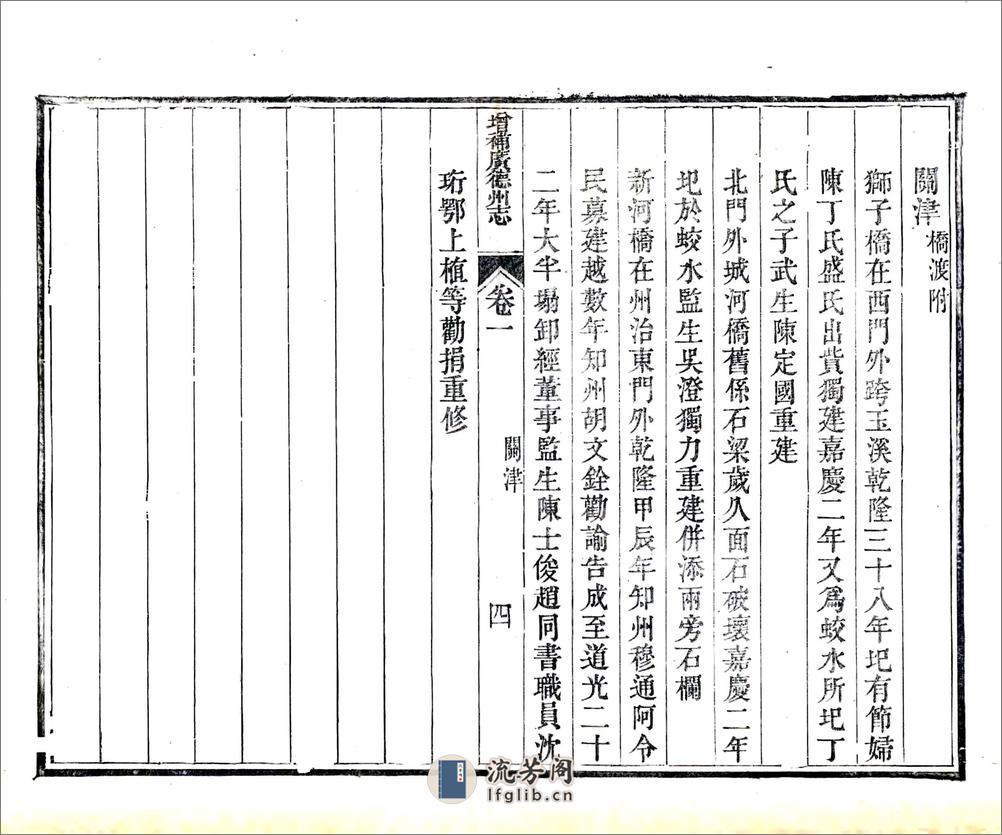 關津橋渡附
獅子橋在西門外跨玉溪乾隆三十八年圯有節婦
陳丁氏盛氏出貲獨建嘉慶二年又為蛟水所圯丁
氏之子武生陳定國重建
北門外城河橋舊係石梁歲久面石破壞嘉慶二年
圯於蛟水監生吳澄獨力重建併添兩旁石欄
新河橋在州治東門外乾隆甲辰年知州穆通阿令
民募建越數年知州胡文銓勸諭告成至道光二十
二年大半塌卸經董事監生陳士俊趙同書職員沈
增補廣德州志
卷一
關津
四
珩鄂上植等勸捐重修
流芳阁
lfglib.cn